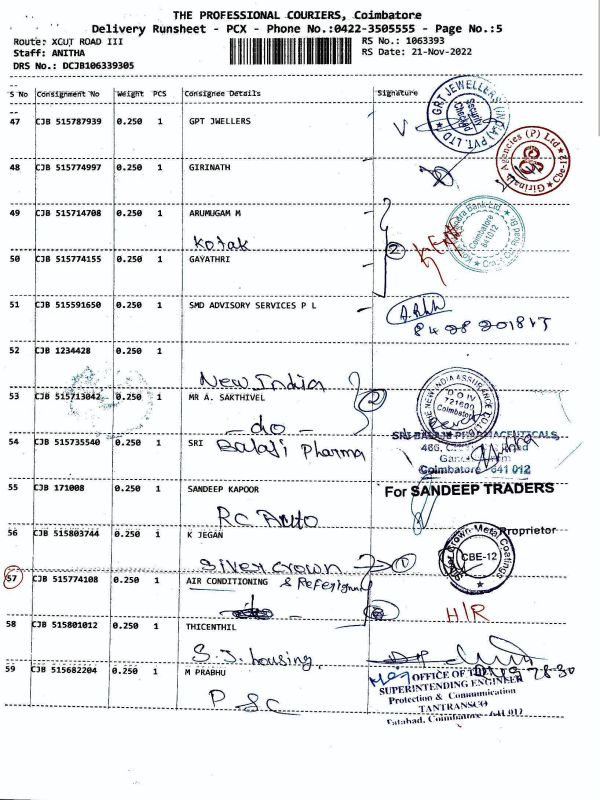 THE PROFESSIONAL COURIERS, Coimbatore
Delivery Runsheet - PCX - Phone No.:0422-3505555 - Page No.:5
Route: XCUT ROAD III
RS No.: 1063393
Staff: ANITHA
RS Date: 21-Nov-2022
DRS No.: DCJB106339305
S No Consignment No Weight PCS Consignee Details Signature
47 CJB 515787939 0.250 1 GPT JWELLERS
GRT JEWELLERS (INDIA) PVT. LTD
Security Checked
48 CJB 515774997 0.250 1 GIRINATH
Girinath Agencies (P) Ltd Cbe-12
49 CJB 515714708 0.250 1 ARUMUGAM M
Kotak
Coimbatore
641012
2
50 CJB 515774155 0.250 1 GAYATHRI
51 CJB 515591650 0.250 1 SMD ADVISORY SERVICES P L
52 CJB 1234428 0.250 1
New India
THE NEW INDIA ASSURANCE CO.
D O IV
721600
Coimbatore
53 CJB 515713042 0.250 1 MR A. SAKTHIVEL
2
- do -
54 CJB 515735540 0.250 1 SRI
Balaji Pharma
SRI BALAJI PHARMACEUTICALS
Coimbatore - 641 012
55 CJB 171008 0.250 1 SANDEEP KAPOOR
For SANDEEP TRADERS
RC Auto
Proprietor
56 CJB 515803744 0.250 1 K JEGAN
Silver Crown
Crown Metal Coatings
CBE-12
57 CJB 515774108 0.250 1 AIR CONDITIONING &
H/R
58 CJB 515801012 0.250 1 THICENTHIL
S. J. housing
59 CJB 515682204 0.250 1 M PRABHU
P SC
OFFICE OF THE
SUPERINTENDING ENGINEER
Protection & Communication
TANTRANSCO
Tatabad, Coimbatore - 641 012